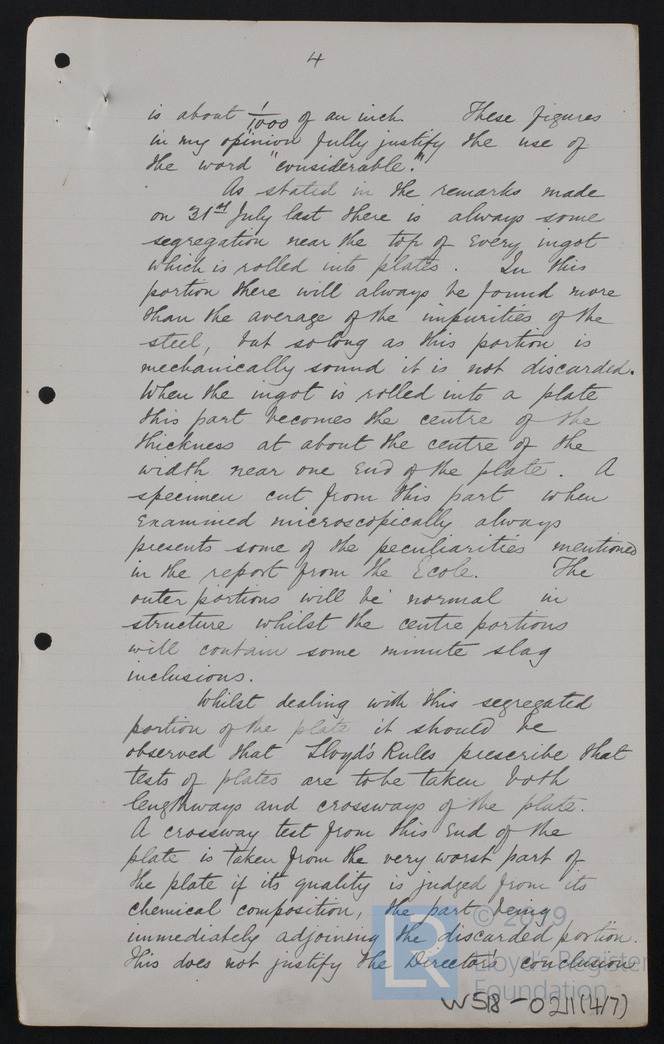 4
is about 1/1000 of an inch. These figures
in my opinion fully justify the use of
the word "considerable."
As stated in the remarks made
on 31st July last there is always some
segregation near the top of every ingot
which is rolled into plates. In this
portion there will always be found more
than the average of the impurities of the
steel, but so long as this portion is
mechanically sound it is not discarded.
When the ingot is rolled into a plate
this part becomes the centre of the
thickness at about the centre of the
width near one end of the plate. A
specimen cut from this part when
examined microscopically always
presents some of the peculiarities mentioned
in the report from the Ecole. The
outer portions will be normal in
structure whilst the centre portions
will contain some minute slag
inclusions.
Whilst dealing with this segregated
portion of the plate it should be
observed that Lloyd's Rules prescribe that
tests of plates are to be taken both
lengthways and crossways of the plate.
A crossway test from this end of the
plate is taken from the very worst part of
the plate if its quality is judged from its
chemical composition, the part being
immediately adjoining the discarded portion.
This does not justify the Director's conclusions
© 2019
LR Lloyd's Register
Foundation
W518-0211(4/7)